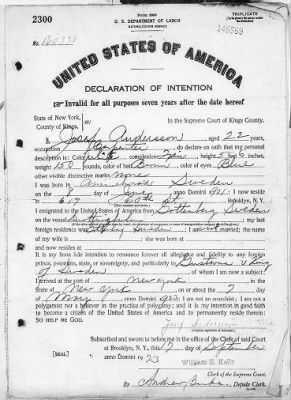 2300
FORM 2202
U. S. DEPARTMENT OF LABOR
NATURALIZATION SERVICE
TRIPLICATE
145559
No.
UNITED STATES OF AMERICA
DECLARATION OF INTENTION
Invalid for all purposes seven years after the date hereof
State of New York,
County of Kings,
ss:
In the Supreme Court of Kings County.
I, Joseph Andersson aged 22 years,
occupation Carpenter do declare on oath that my personal
description is: Color White complexion height 5 feet inches,
weight 150 pounds, color of hair Brown color of eyes Blue
other visible distinctive marks None
I was born in Sweden
on the day of anno Domini I now reside
at 617 60th st. Brooklyn, N. Y.
I emigrated to the United States of America from Gottenberg Sweden
on the vessel my last
foreign residence was Sweden I am not married; the name of
my is ; she was born at
and now resides at
It is my bona fide intention to renounce forever all allegiance and fidelity to any foreign
prince, potentate, state, or sovereignty, and particularly to Gustavus V King
of Sweden of whom I am now a subject;
I arrived at the port of New York in the
State of New York on or about the 7 day
of May anno Domini; I am not an anarchist; I am not a
polygamist nor a believer in the practice of polygamy; and it is my intention in good faith
to become a citizen of the United States of America and to permanently reside therein:
SO HELP ME GOD.
Subscribed and sworn to before me in the office of the Clerk of said Court
at Brooklyn, N. Y., this day of September
[SEAL] anno Domini 1923
William E. Kelly
Clerk of the Supreme Court.
By Deputy Clerk.